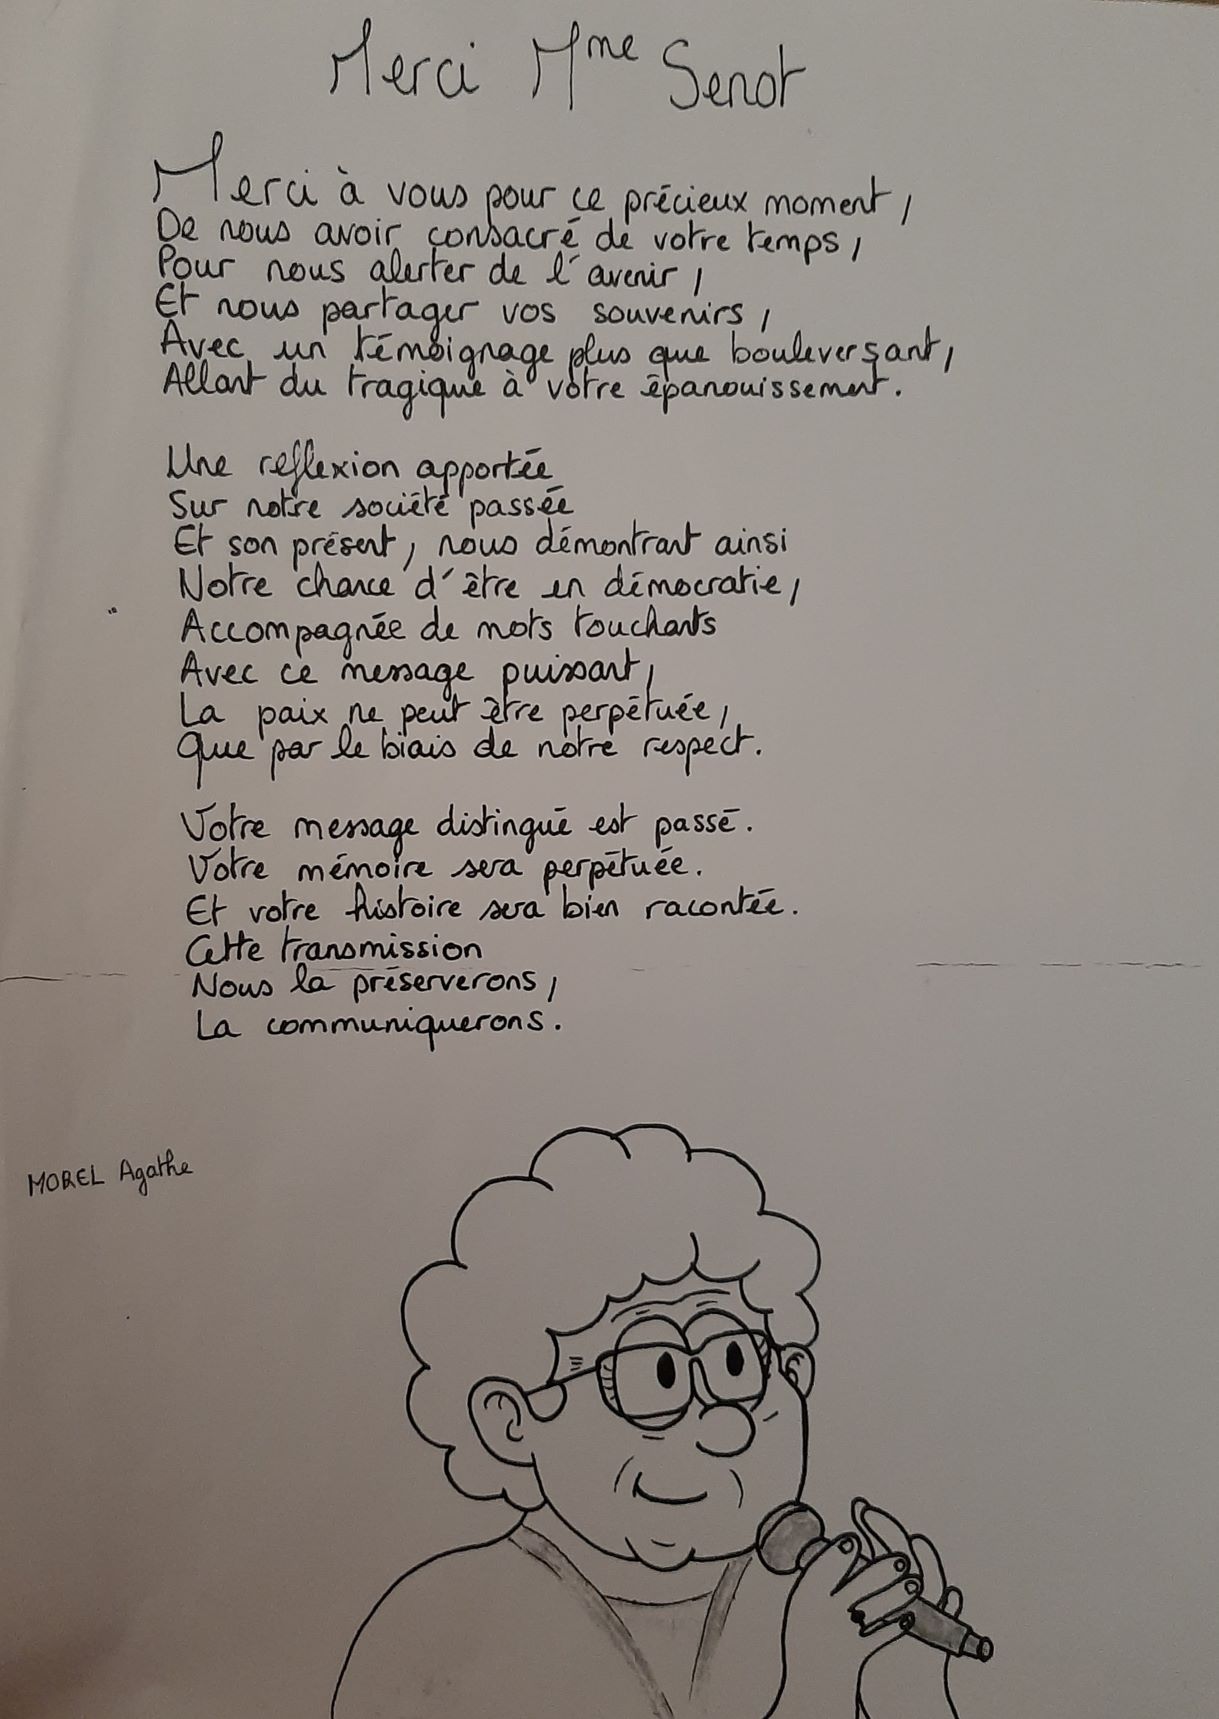 Merci Mme Senot
Merci à vous pour ce précieux moment,
De nous avoir consacré de votre temps,
Pour nous alerter de l'avenir,
Et nous partager vos souvenirs,
Avec un témoignage plus que bouleversant,
Allant du tragique à votre épanouissement.
Une reflexion apportée
Sur notre société passée
Et son présent, nous démontrant ainsi
Notre chance d'être en démocratie,
Accompagnée de mots touchants
Avec ce message puissant,
La paix ne peut être perpétuée,
Que par le biais de notre respect.
Votre message distingué est passé.
Votre mémoire sera perpétuée.
Et votre histoire sera bien racontée.
Cette transmission
Nous la préserverons,
La communiquerons.
MOREL Agathe